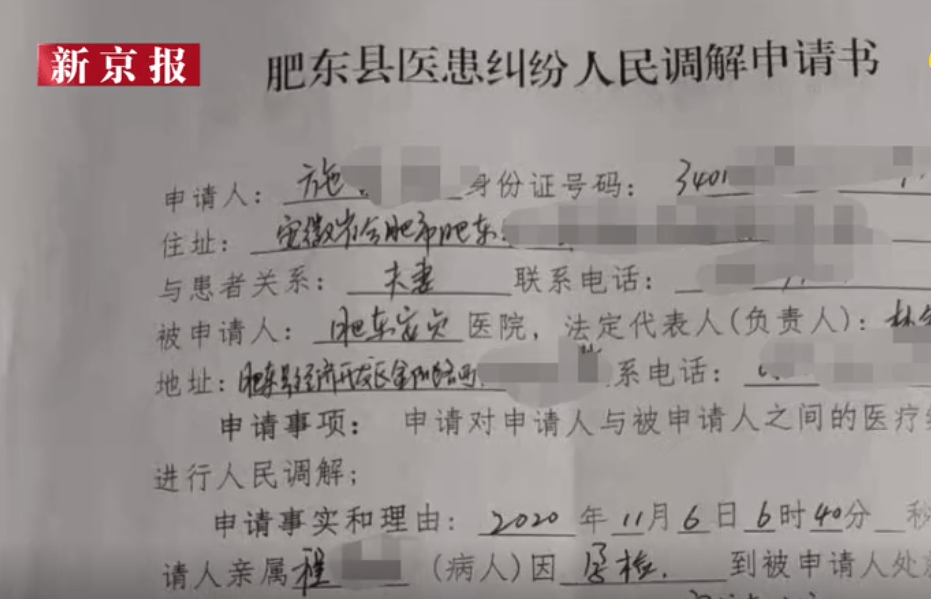 新京报
肥东县医患纠纷人民调解申请书
申请人：施 身份证号码：3401
住址：安徽省合肥市肥东
与患者关系：夫妻 联系电话：
被申请人：肥东安贞医院，法定代表人(负责人)：林
地址：肥东县经济开发区金阳路西 系电话：
申请事项：申请对申请人与被申请人之间的医疗
进行人民调解；
申请事实和理由：2020年11月6日6时40分 秒
请人亲属程 (病人)因 孕检. 到被申请人处